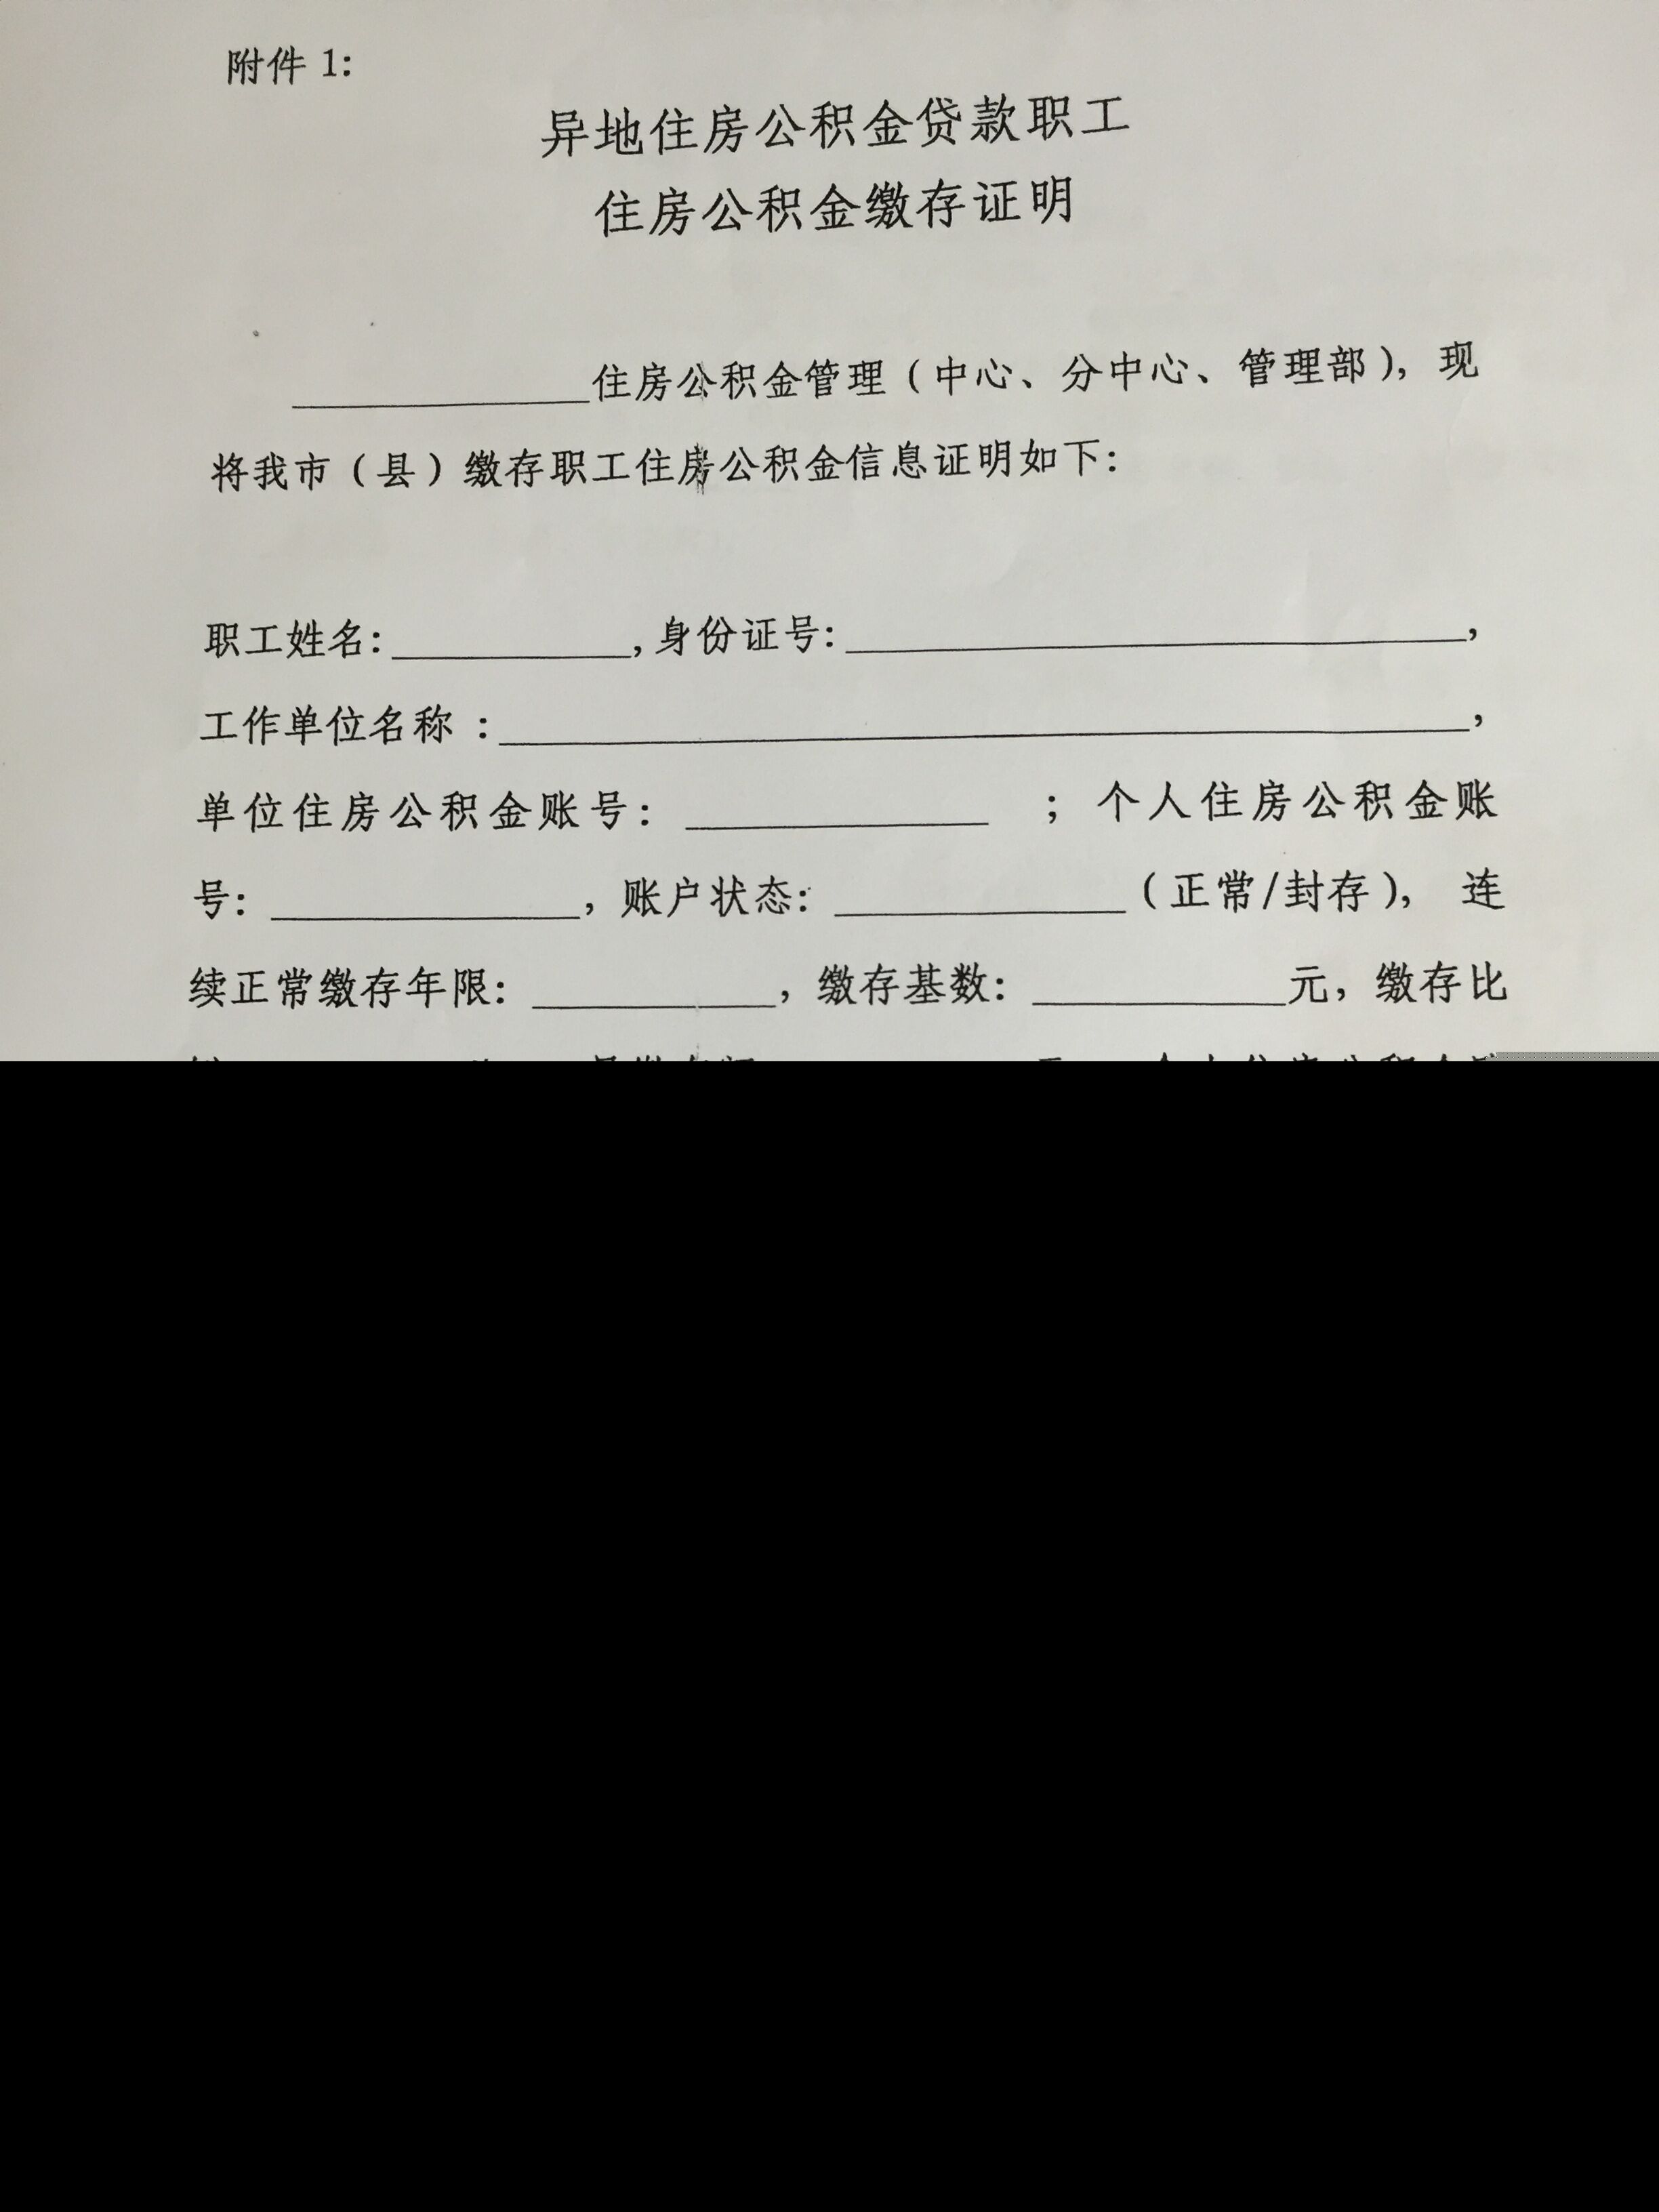 附件 1:
异地住房公积金贷款职工
住房公积金缴存证明
______住房公积金管理（中心、分中心、管理部），现
将我市（县）缴存职工住房公积金信息证明如下:
职工姓名:______, 身份证号:______,
工作单位名称 :______,
单位住房公积金账号: ______ ; 个人住房公积金账
号: ______, 账户状态: ______（正常/封存）, 连
续正常缴存年限: ______, 缴存基数: ______元, 缴存比